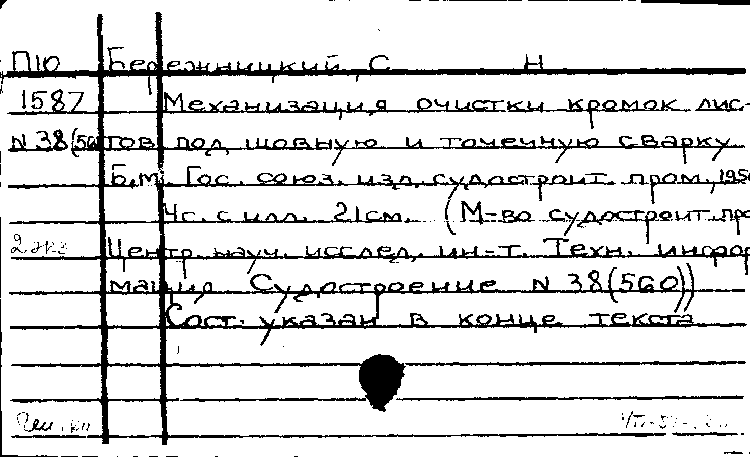 П10 Бережницкий, С Н
1587 Механизация очистки кромок лис-
N 38(560 тов под шовную и точечную сварку
Б.м. Гос. союз. изд. судостроит. пром., 195
4с. с илл. 21см. (М-во судостроит. про
2 экз Центр. науч. исслед. ин-т. Техн. инфор
мация Судостроение N 38(560))
Сост. указан в конце текста